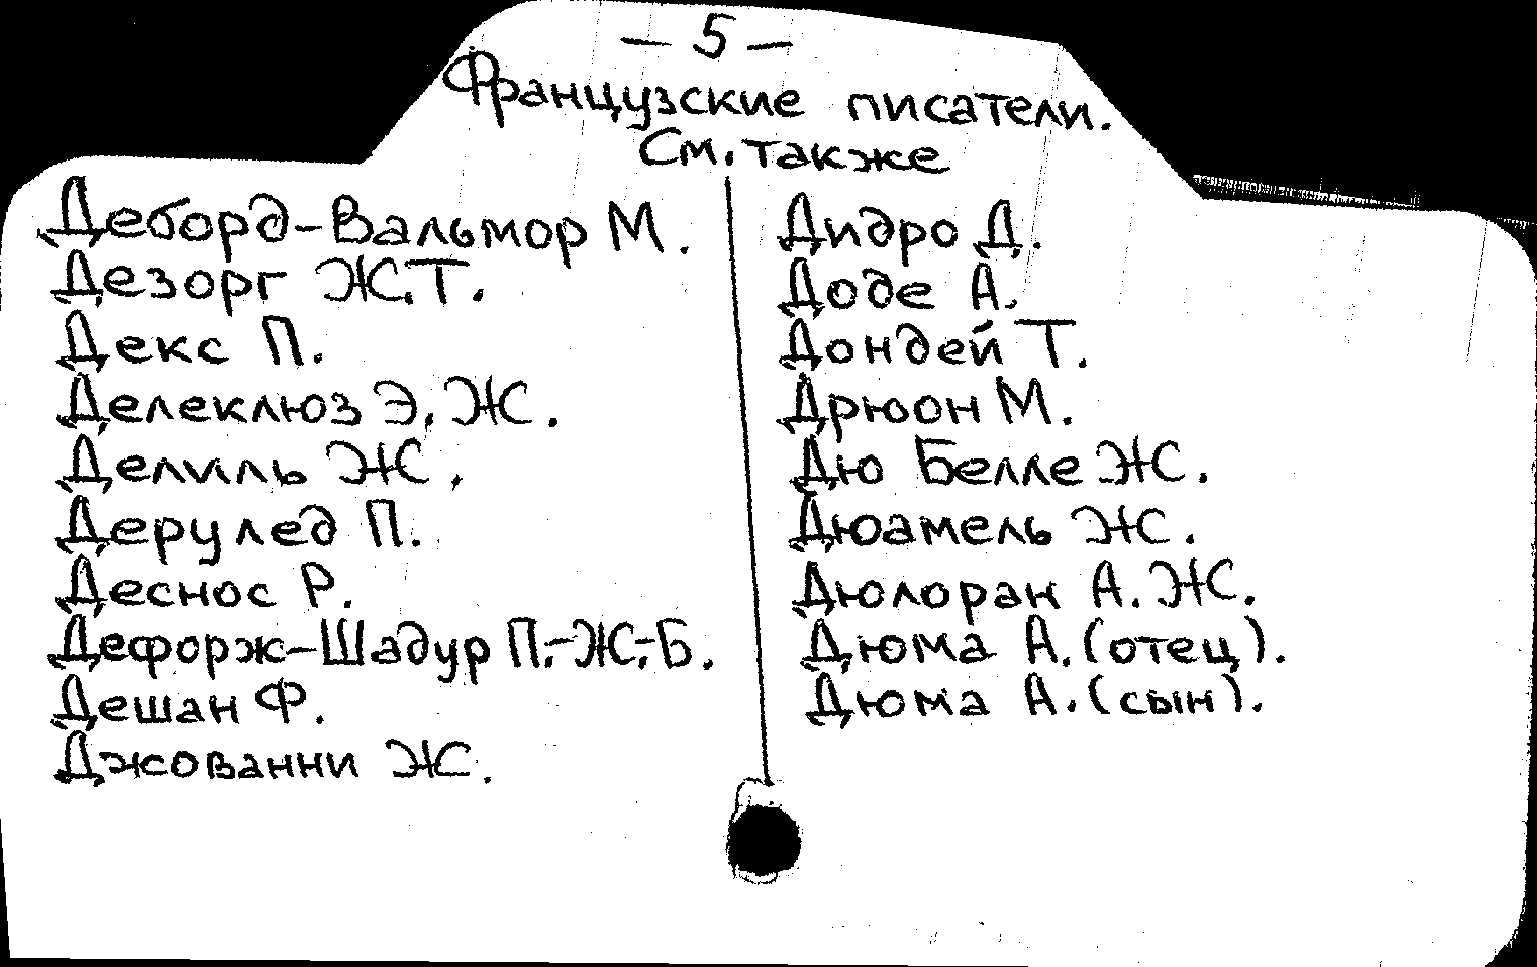 — 5 —
Французские писатели.
См. также
Деборд-Вальмор М.
Дезорг Ж.Т.
Декс П.
Делеклюз Э. Ж.
Делиль Ж.
Дерулед П.
Деснос Р.
Дефорж-Шадур П.-Ж.-Б.
Дешан Ф.
Джованни Ж.
Дидро Д.
Доде А.
Дондей Т.
Дрюон М.
Дю Белле Ж.
Дюамель Ж.
Дюлорак А. Ж.
Дюма А. (отец).
Дюма А. (сын).